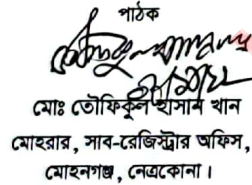 পাঠক
মোঃ তৌফিকুল হাসান খান
মোহরার, সাব-রেজিস্ট্রার অফিস,
মোহনগঞ্জ, নেত্রকোনা।